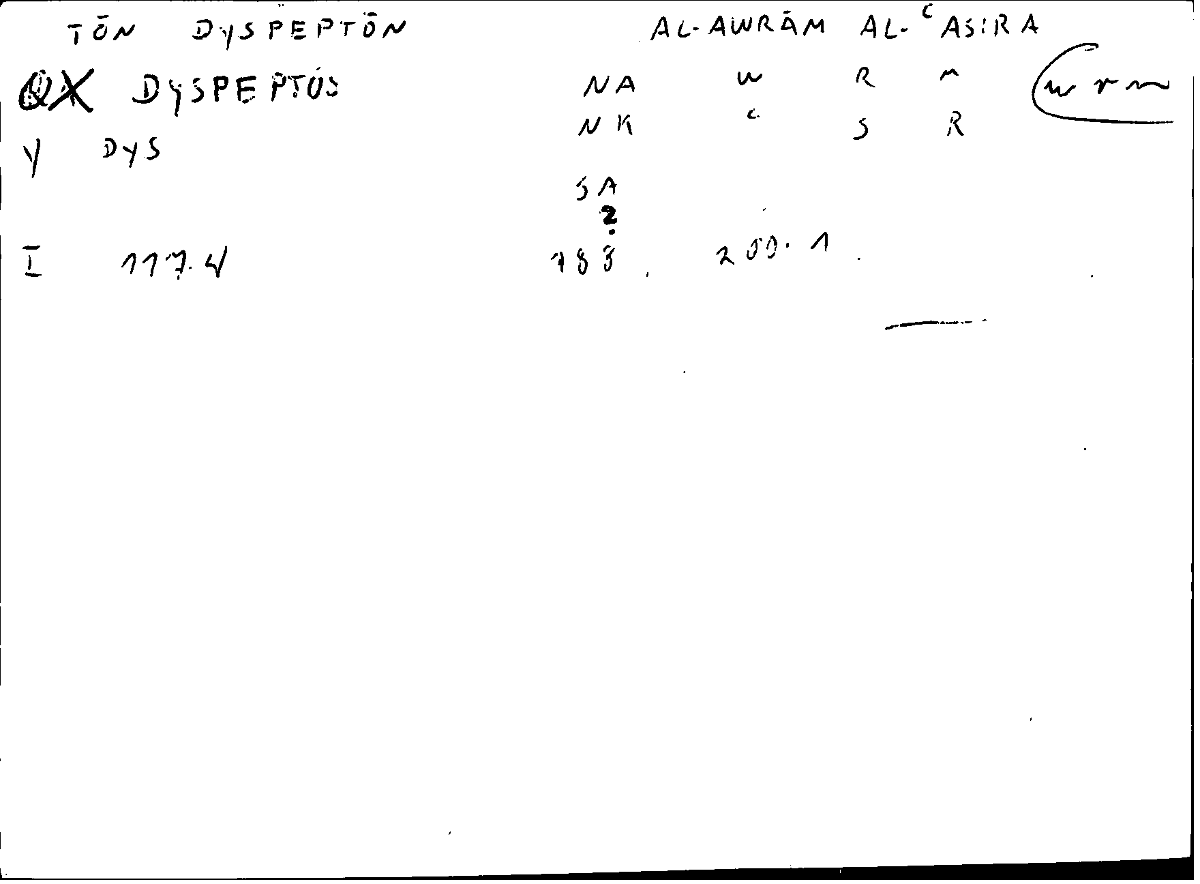 TŌN DYSPEPTŌN AL-AWRĀM AL-ʿASIRA
QX DYSPEPTOS NA W R M wrm
Y DYS NK ʿ S R
SA
2
I 117.4 188. 200.1